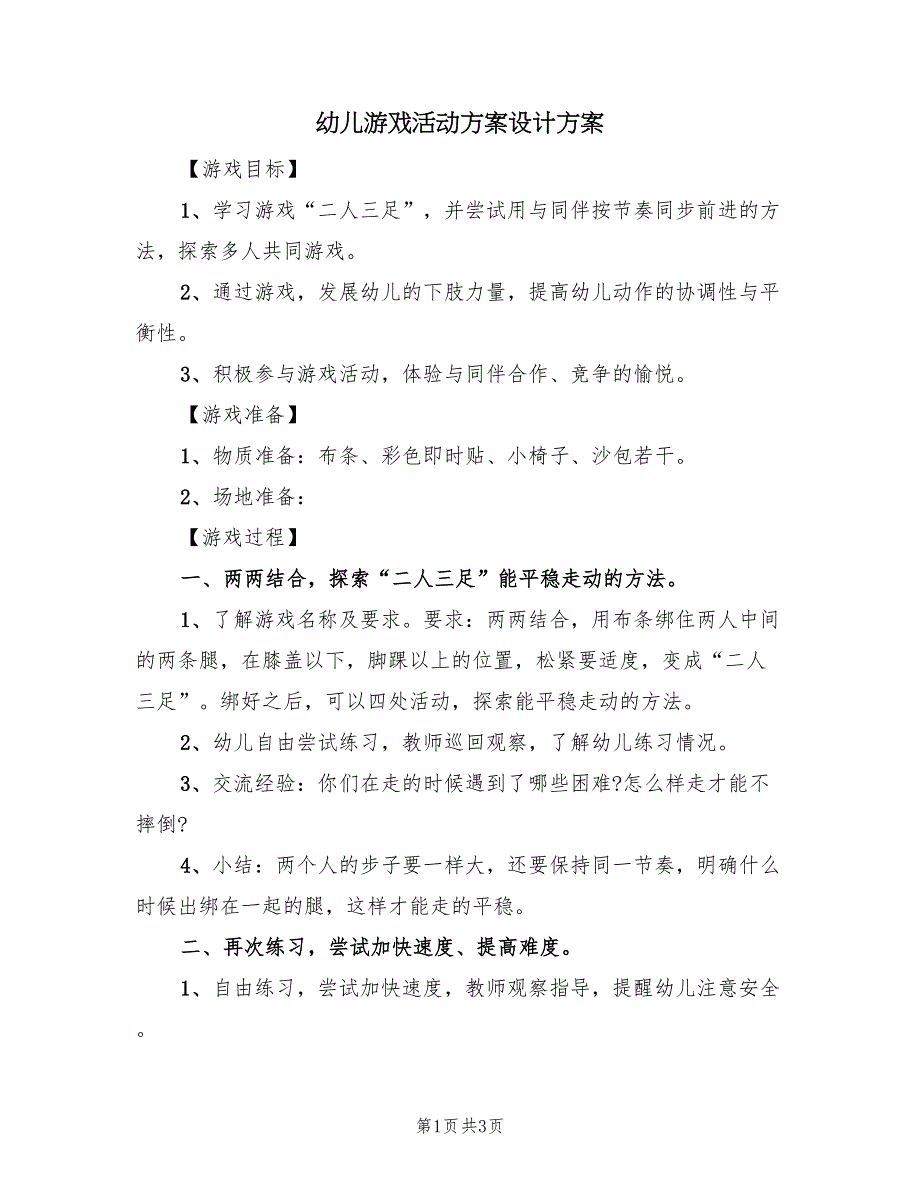 幼儿游戏活动方案设计方案
【游戏目标】
1、学习游戏“二人三足”，并尝试用与同伴按节奏同步前进的方
法，探索多人共同游戏。
2、通过游戏，发展幼儿的下肢力量，提高幼儿动作的协调性与平
衡性。
3、积极参与游戏活动，体验与同伴合作、竞争的愉悦。
【游戏准备】
1、物质准备：布条、彩色即时贴、小椅子、沙包若干。
2、场地准备：
【游戏过程】
一、两两结合，探索“二人三足”能平稳走动的方法。
1、了解游戏名称及要求。要求：两两结合，用布条绑住两人中间
的两条腿，在膝盖以下，脚踝以上的位置，松紧要适度，变成“二人
三足”。绑好之后，可以四处活动，探索能平稳走动的方法。
2、幼儿自由尝试练习，教师巡回观察，了解幼儿练习情况。
3、交流经验：你们在走的时候遇到了哪些困难?怎么样走才能不
摔倒?
4、小结：两个人的步子要一样大，还要保持同一节奏，明确什么
时候出绑在一起的腿，这样才能走的平稳。
二、再次练习，尝试加快速度、提高难度。
1、自由练习，尝试加快速度，教师观察指导，提醒幼儿注意安全
。
第1页 共3页